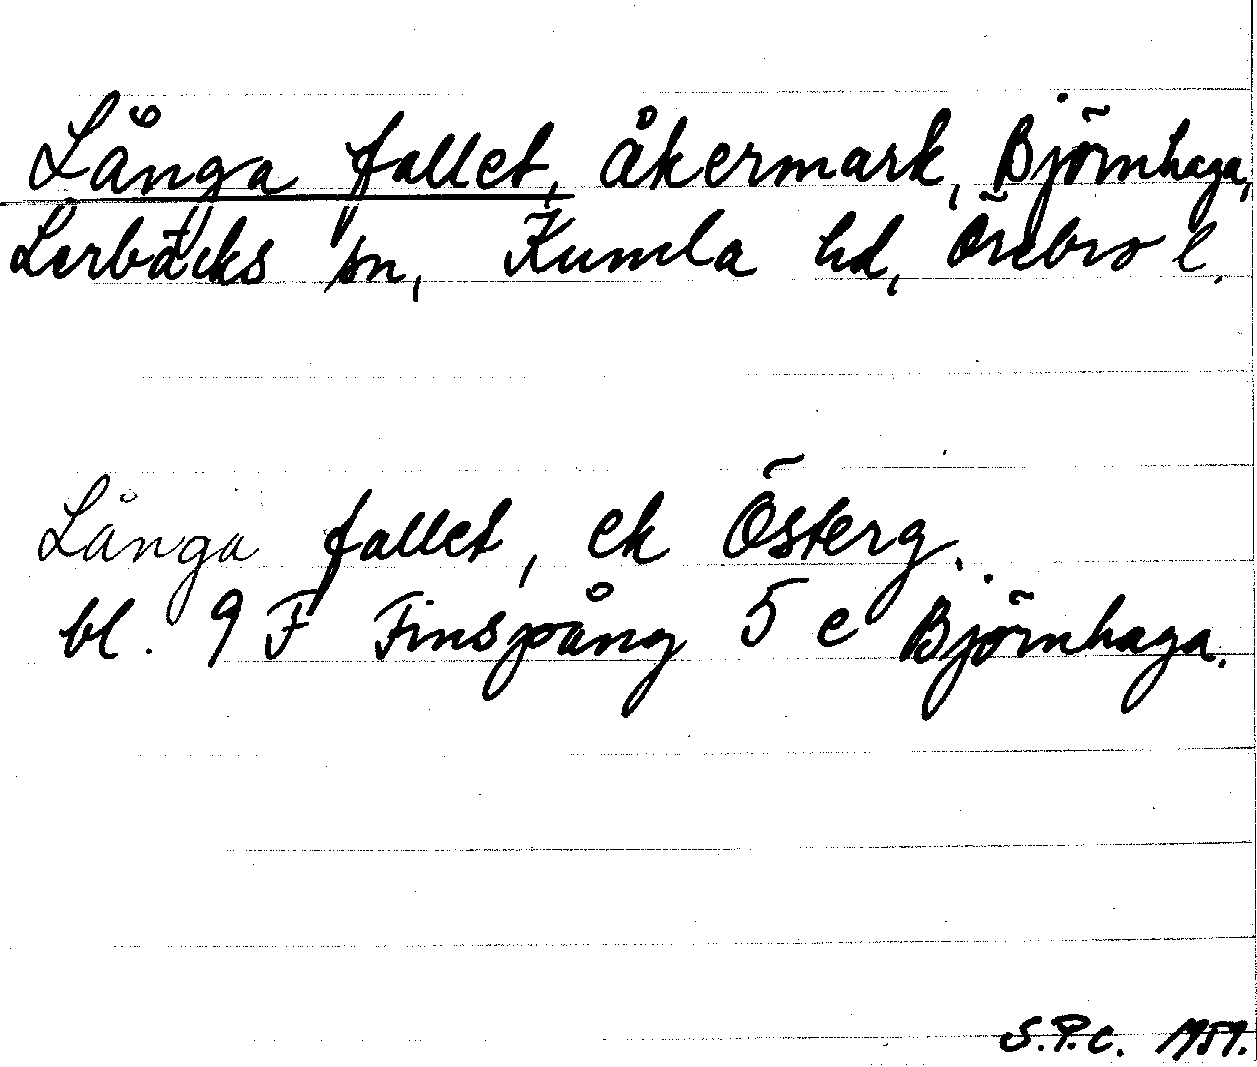 Långa fallet, åkermark, Björnhaga,
Lerbäcks sn, Kumla hd, Örebro l.
Långa fallet, ek Österg.
bl. 9 F Finspång 5 e Björnhaga.
S.P.C. 1959.